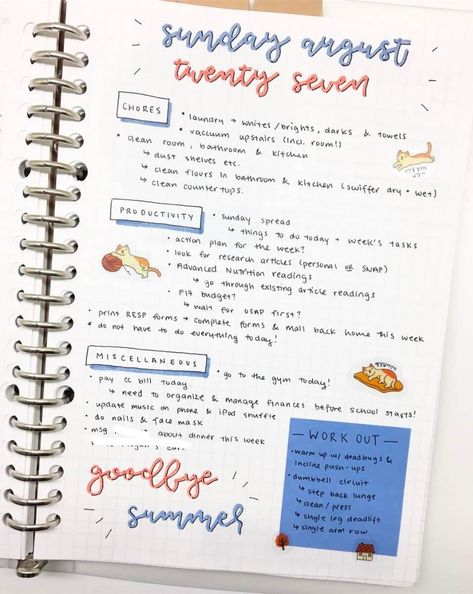 sunday august
twenty seven
CHORES
• laundry → whites/brights, darks & towels
• vacuum upstairs (incl. room!)
• clean room, bathroom & kitchen
↳ dust shelves etc.
↳ clean floors in bathroom & kitchen (swiffer dry + wet)
↳ clean countertops.
PRODUCTIVITY
• sunday spread
↳ things to do today + week's tasks
• action plan for the week?
• look for research articles (personal or SNAP)
• Advanced Nutrition readings
↳ go through existing article readings
• Fix budget?
↳ wait for OSAP first?
• print RESP forms → complete forms & mail back home this week
* do not have to do everything today!
MISCELLANEOUS
• go to the gym today!
• pay cc bill today
↳ need to organize & manage finances before school starts!
• update music on phone & iPod shuffle
• do nails & face mask
• msg about dinner this week
goodbye
summer
— WORK OUT —
• warm up w/ deadbugs &
incline push-ups
• dumbbell circuit
↳ step back lunge
↳ clean / press
↳ single leg deadlift
↳ single arm row